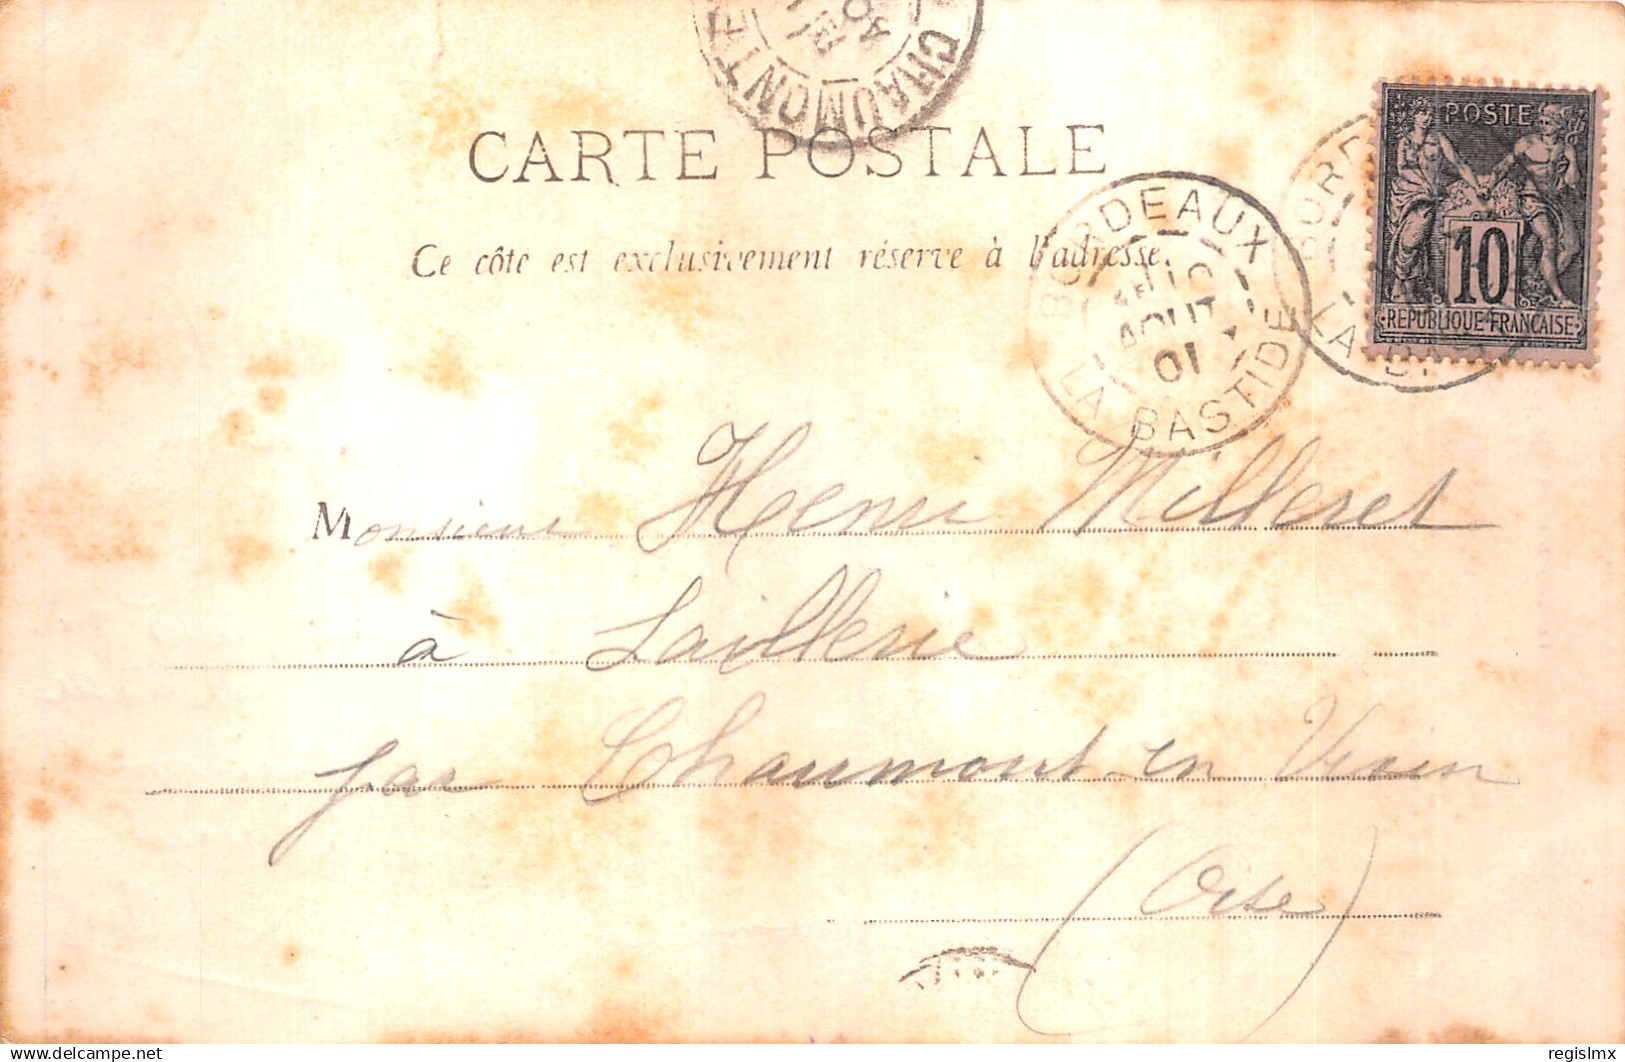 CHAUMONT
CARTE POSTALE
POSTE
10
REPUBLIQUE FRANCAISE
BORDEAUX
AOUT
01
LA BASTIDE
BORD
LA B
Ce côté est exclusivement réservé à l'adresse.
Monsieur Henri Milleret
à Laillerie
par Chaumont-en Vexin
(Oise)
regislmx